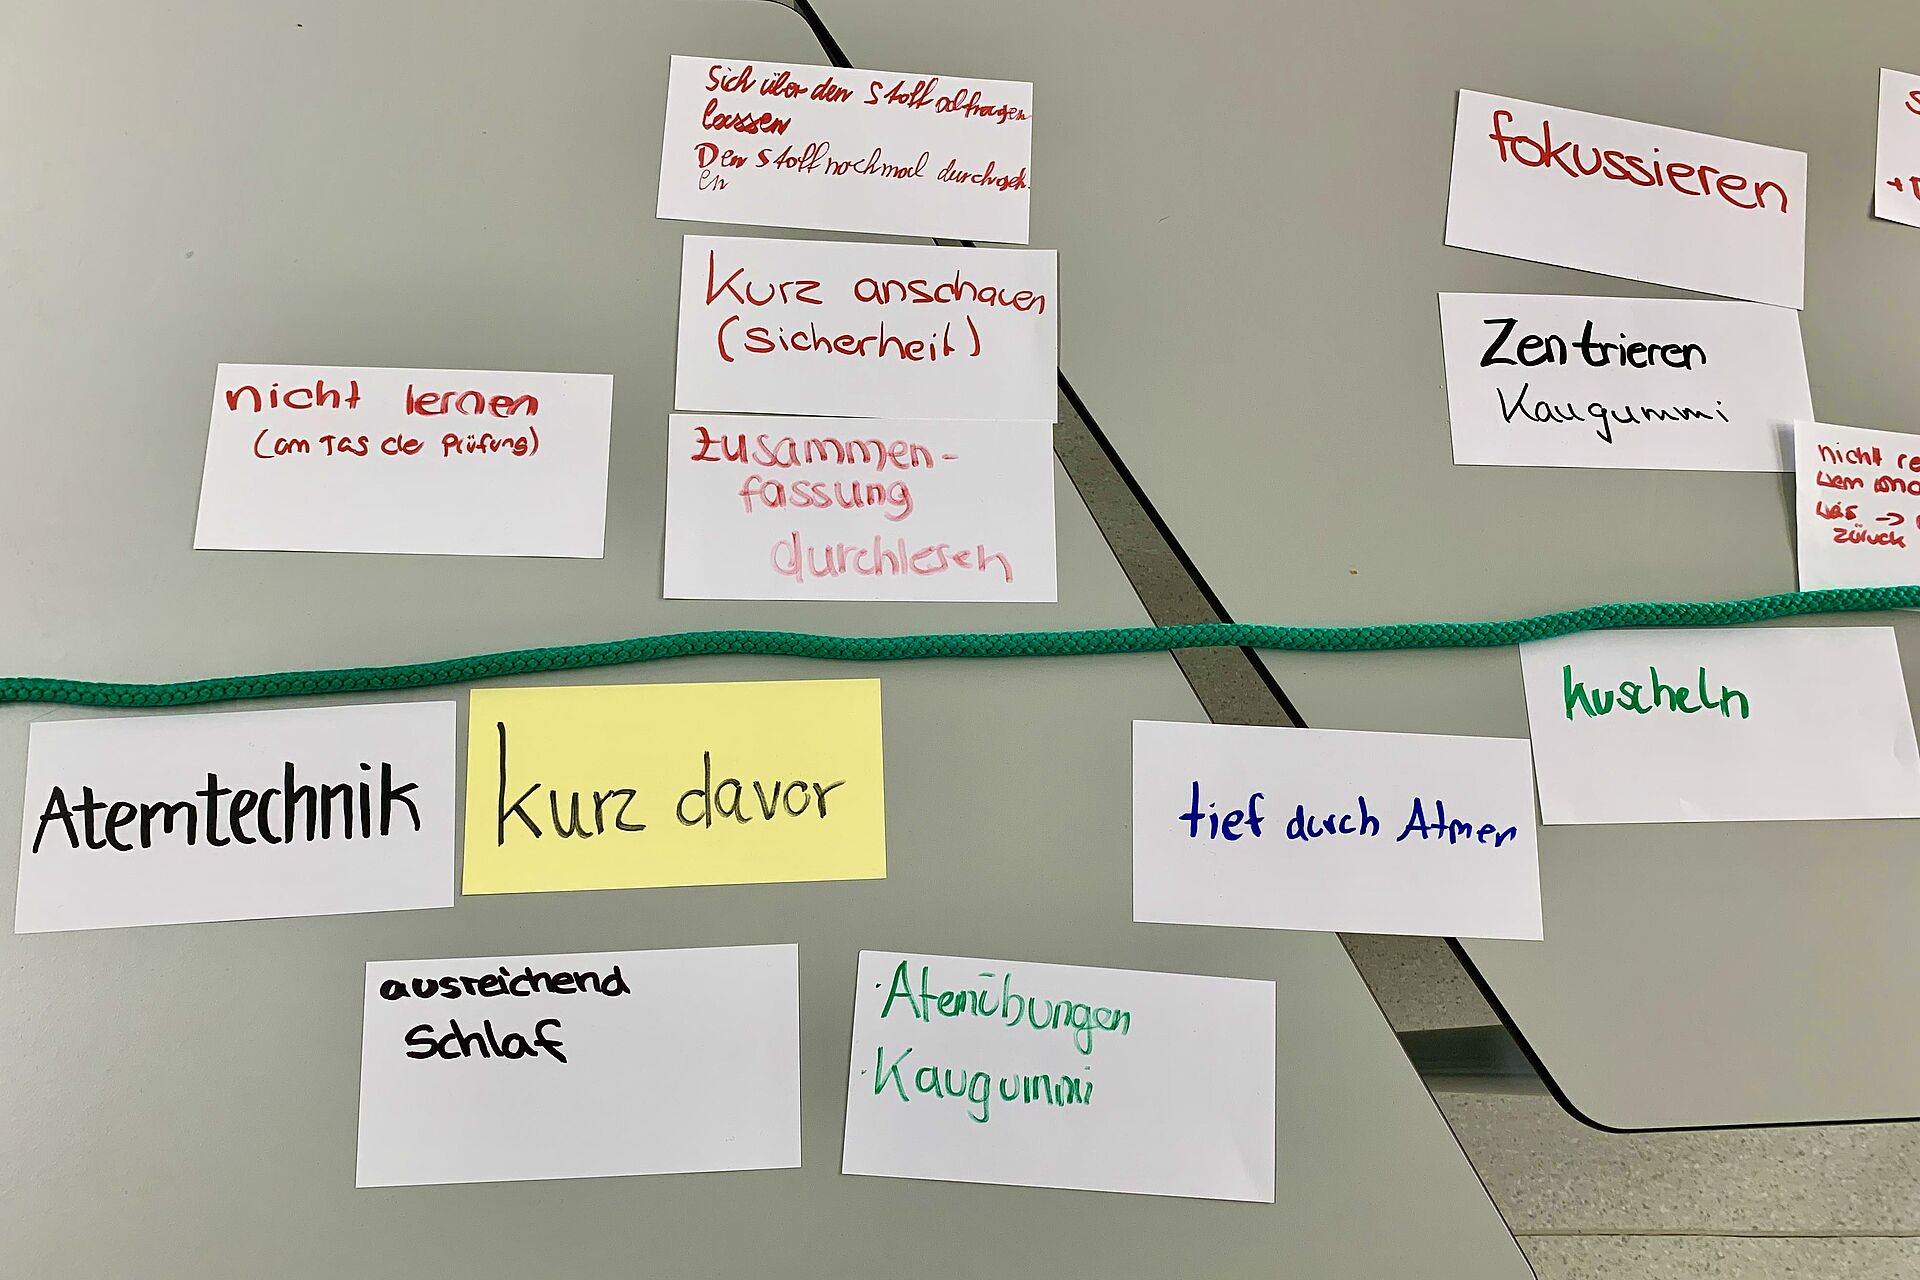 Sich über den Stoff abfragen
lassen
Den Stoff nochmal durchgeh-
en
kurz anschauen
(Sicherheit)
nicht lernen
(am Tag de Prüfung)
Zusammen-
fassung
durchlesen
fokussieren
Zentrieren
Kaugummi
nicht
zürück
Atemtechnik
kurz davor
tief durch Atmen
kuscheln
ausreichend
Schlaf
· Atemübungen
· Kaugummi